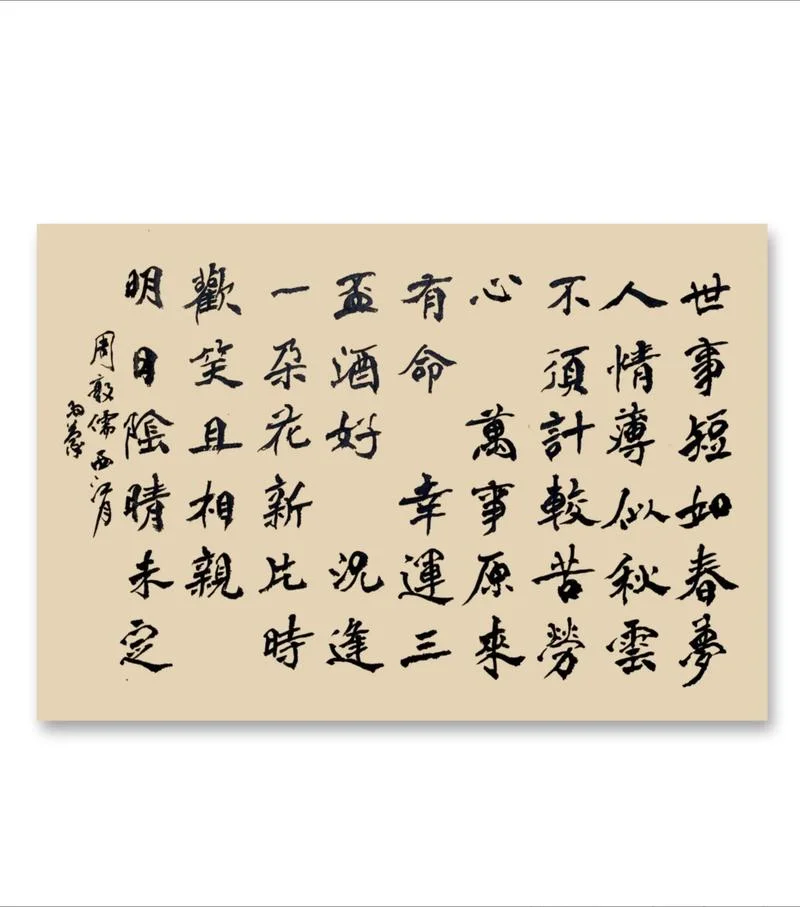 世事短如春夢
人情薄似秋雲
不須計較苦勞
心　萬事原來
有命　幸運三
盃酒好　況逢
一朵花新　片時
歡笑且相親
明日陰晴未定
周敦儒西江月